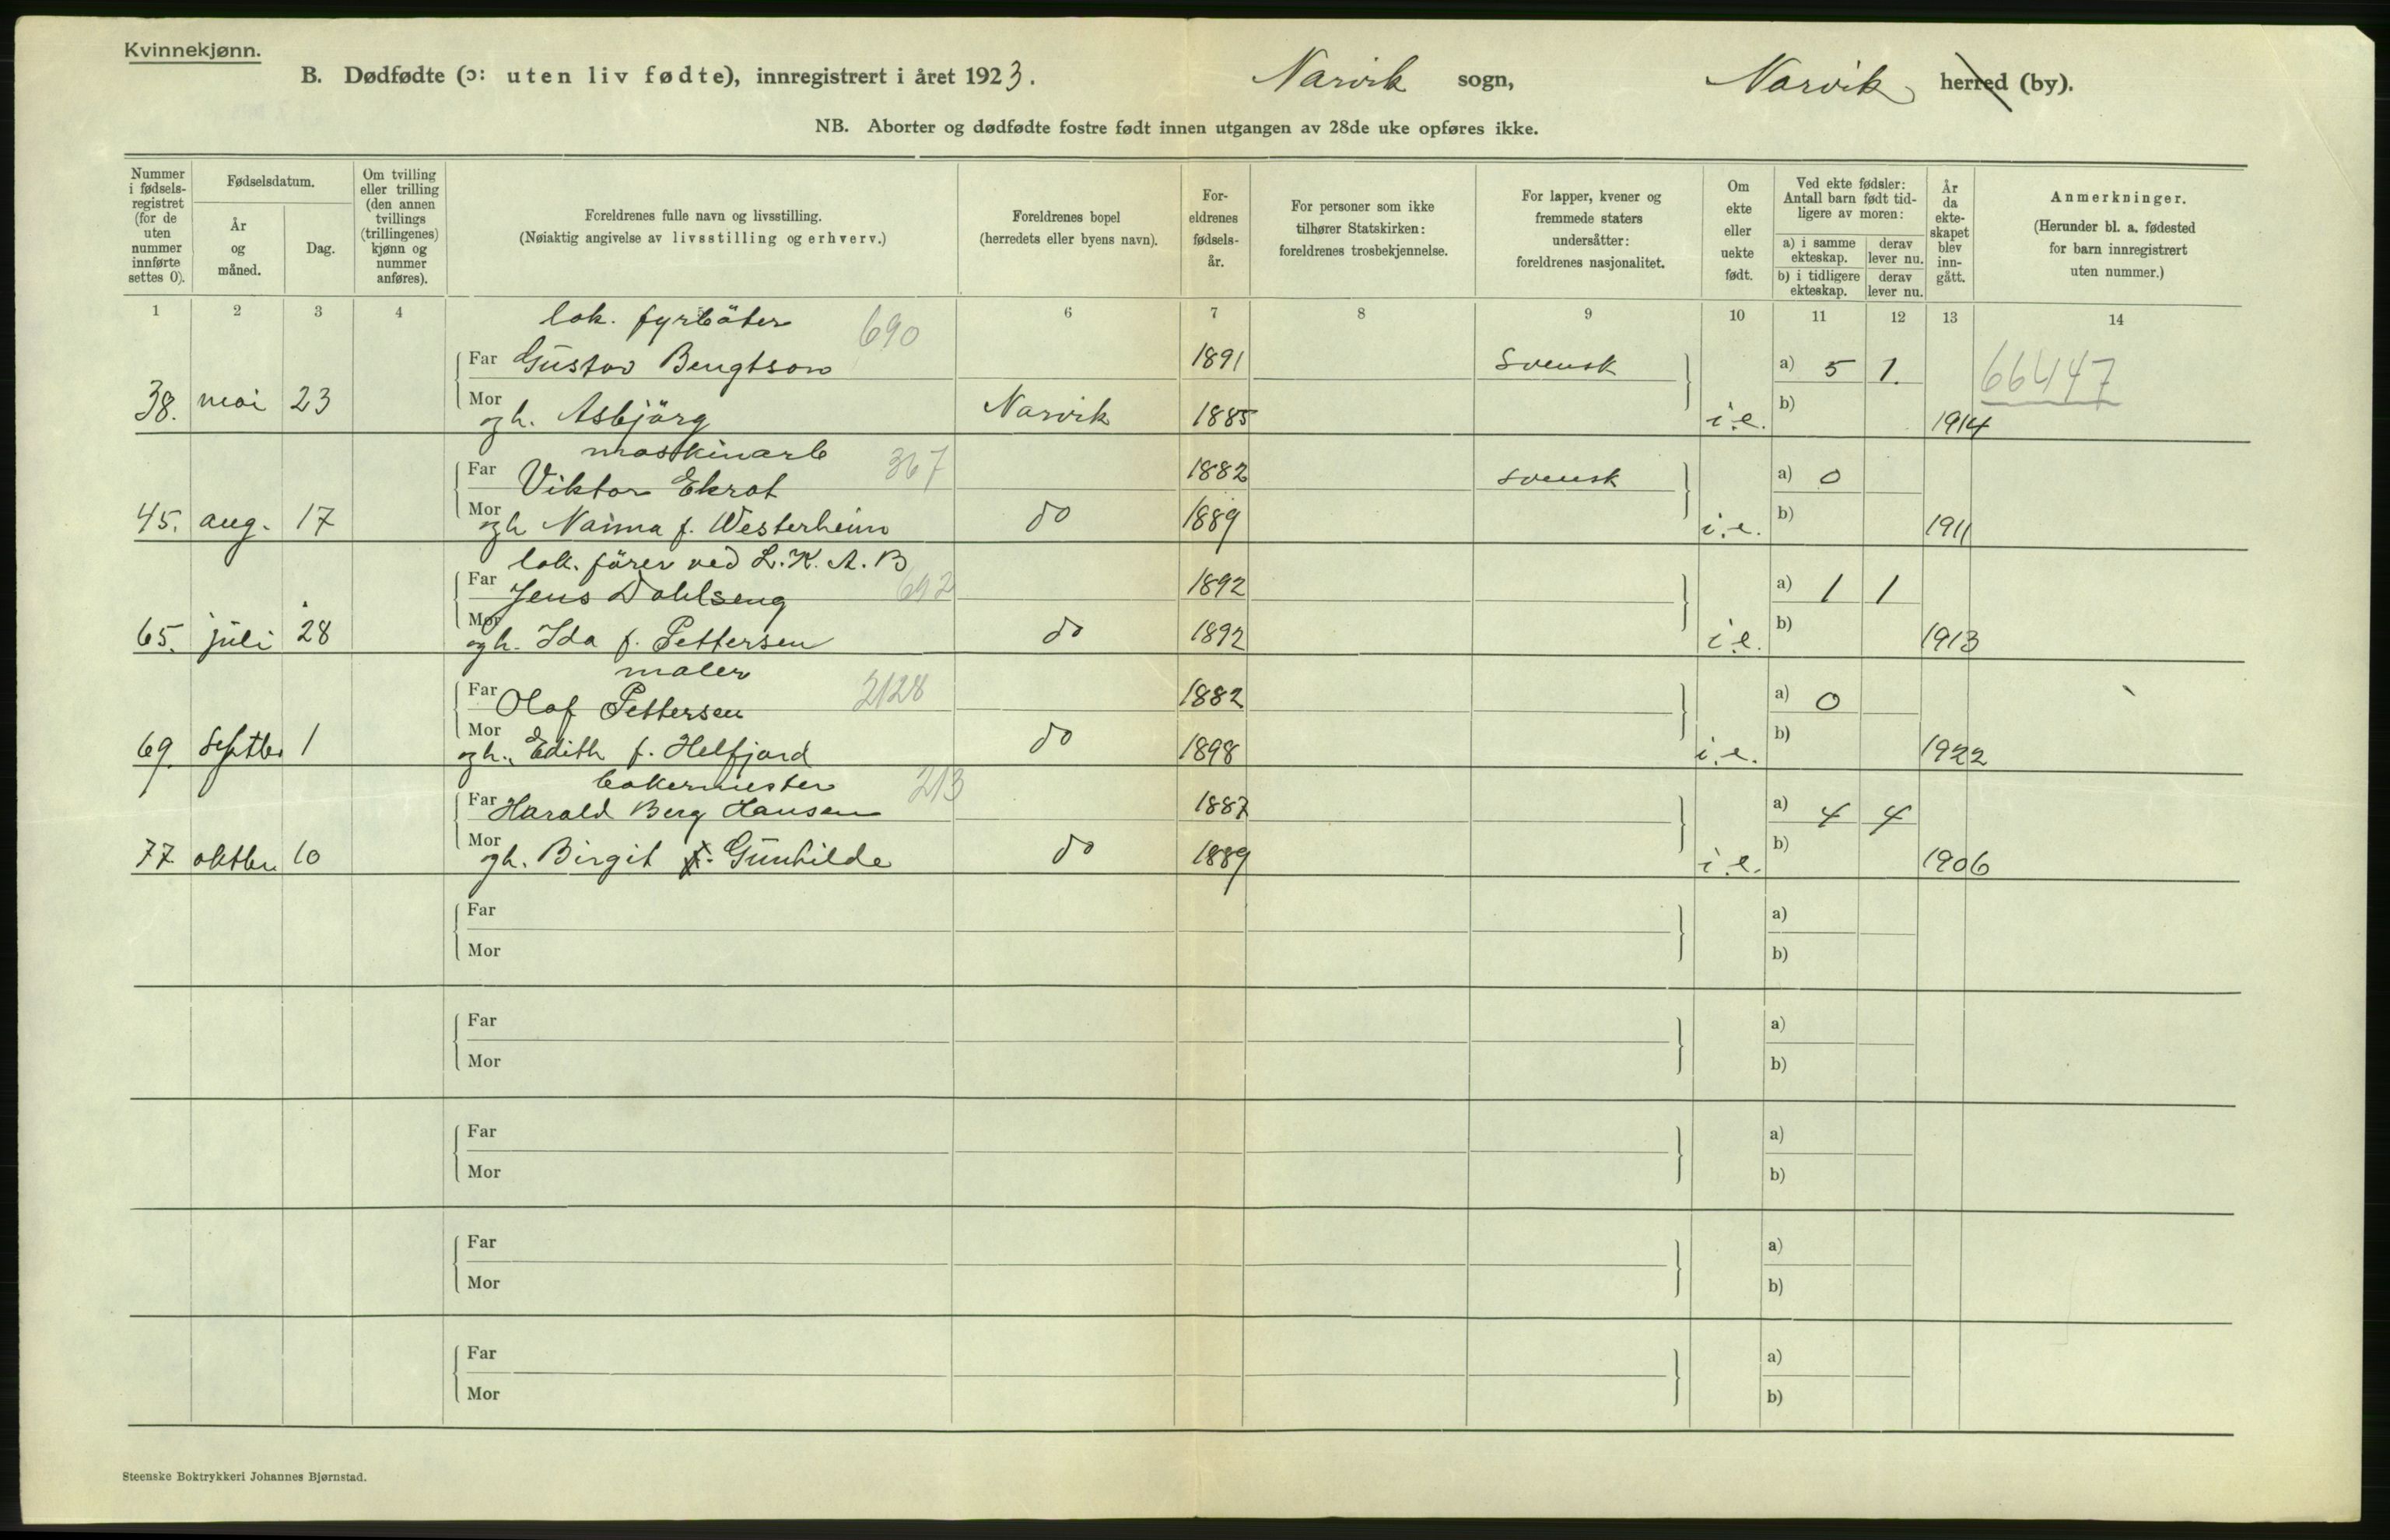 Kvinnekjønn.
B. Dødfødte (ɔ: uten liv fødte), innregistrert i året 1923. Narvik sogn, Narvik herred (by).
NB. Aborter og dødfødte fostre født innen utgangen av 28de uke opføres ikke.
Nummer i fødselsregistret (for de uten nummer innførte settes 0).
Fødselsdatum.
År og måned.
Dag.
Om tvilling eller trilling (den annen tvillings (trillingenes) kjønn og nummer anføres).
Foreldrenes fulle navn og livsstilling.
(Nøiaktig angivelse av livsstilling og erhverv.)
Foreldrenes bopel
(herredets eller byens navn).
Foreldrenes fødselsår.
For personer som ikke tilhører Statskirken: foreldrenes trosbekjennelse.
For lapper, kvener og fremmede staters undersåtter: foreldrenes nasjonalitet.
Om ekte eller uekte født.
Ved ekte fødsler: Antall barn født tidligere av moren:
a) i samme ekteskap. derav lever nu.
b) i tidligere ekteskap. derav lever nu.
År da ekteskapet blev inngått.
Anmerkninger.
(Herunder bl. a. fødested for barn innregistrert uten nummer.)
1 2 3 4 6 7 8 9 10 11 12 13 14
lok. fyrböter 690
Far Gustav Bengtson 1891 Svensk a) 5 1. 66447
38. mai 23 Mor og h. Asbjörg Narvik 1885 i.e. b) 1914
maskinarb 367
Far Viktor Ekrot 1882 svensk a) 0
45. aug. 17 Mor og h Naima f. Westerheim do 1889 i.e. b) 1911
lok. förer ved L.K.A.B
Far Jens Dahlseng 692 1892 a) 1 1
65. juli 28 Mor og h. Ida f. Pettersen do 1892 i.e. b) 1913
maler
Far Olaf Pettersen 2128 1882 a) 0
69. Septbr 1 Mor og h. Edith f. Helfjord do 1898 i.e. b) 1922
bakermester 213
Far Harald Berg Hansen 1887 a) 4 4
77 oktbr 10 Mor og h. Birgit f. Gunhilde do 1889 i.e. b) 1906
Far a)
Mor b)
Far a)
Mor b)
Far a)
Mor b)
Far a)
Mor b)
Far a)
Mor b)
Steenske Boktrykkeri Johannes Bjørnstad.